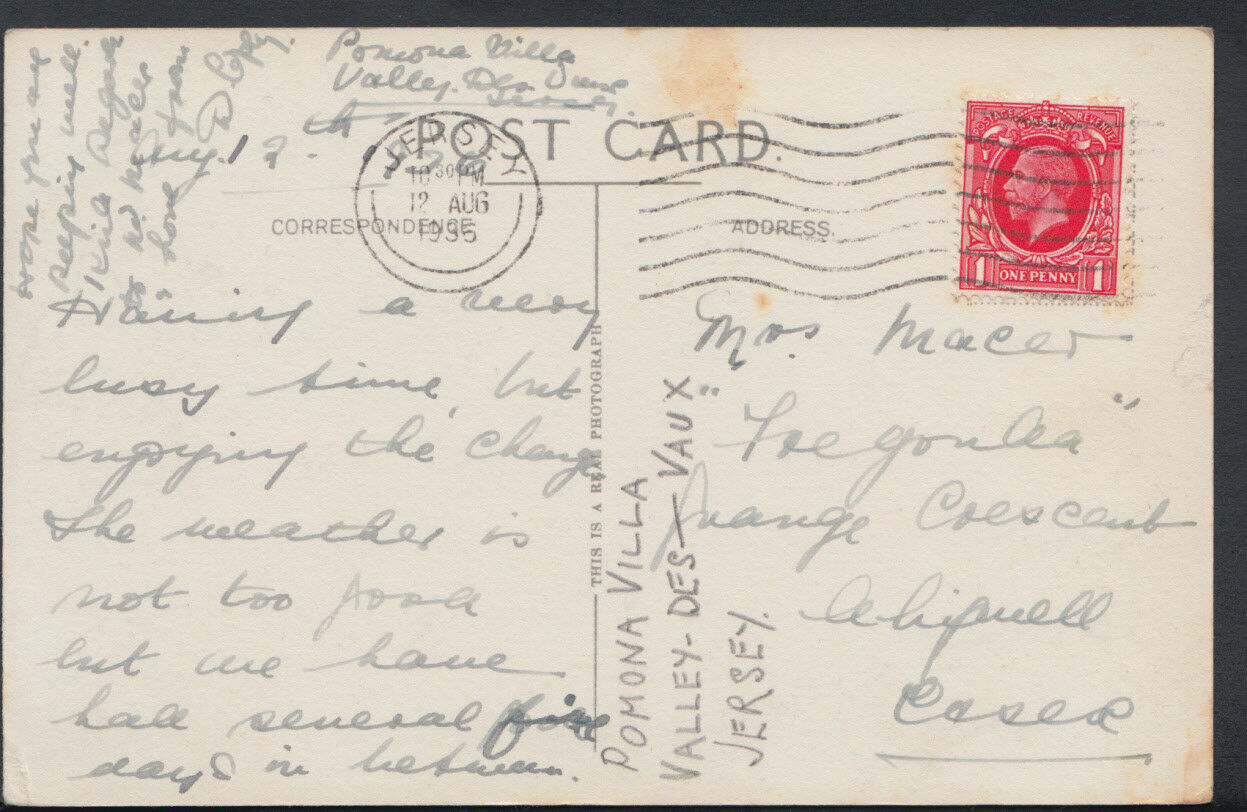 Pomona Villa
Valley Des
POST CARD.
Aug. 12.
JERSEY
10 30 PM
12 AUG
1935
CORRESPONDENCE
ADDRESS.
POSTAGE REVENUE
1 ONE PENNY 1
Having a very
busy time, but
enjoying the change
The weather is
not too good
but we have
had several fine
days in between.
Hope you are
keeping well.
Kind Regards
to Mr Macer
Love from
THIS IS A REAL PHOTOGRAPH
POMONA VILLA
VALLEY-DES-VAUX
JERSEY.
Mrs. Macer
"Tregonlea"
Grange Crescent
Chigwell
Essex